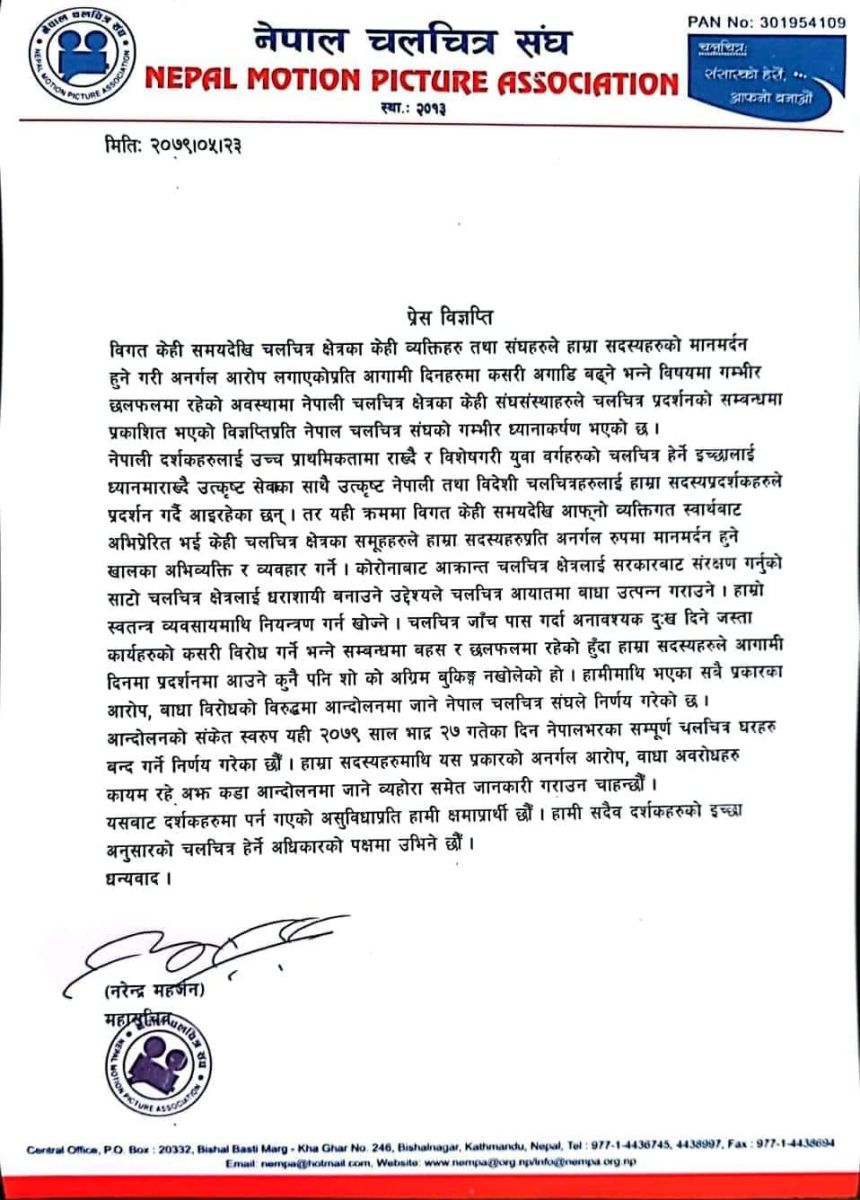 नेपाल चलचित्र संघ
NEPAL MOTION PICTURE ASSOCIATION
स्था.: २०१३
नेपाल चलचित्र संघ
NEPAL MOTION PICTURE ASSOCIATION
PAN No: 301954109
चलचित्र:
संसारको हेरौं, ...
आफ्नो बनाऔं
मिति: २०७९।०५।२३
प्रेस विज्ञप्ति
विगत केही समयदेखि चलचित्र क्षेत्रका केही व्यक्तिहरु तथा संघहरुले हाम्रा सदस्यहरुको मानमर्दन
हुने गरी अनर्गल आरोप लगाएकोप्रति आगामी दिनहरुमा कसरी अगाडि बढ्ने भन्ने विषयमा गम्भीर
छलफलमा रहेको अवस्थामा नेपाली चलचित्र क्षेत्रका केही संघसंस्थाहरुले चलचित्र प्रदर्शनको सम्बन्धमा
प्रकाशित भएको विज्ञप्तिप्रति नेपाल चलचित्र संघको गम्भीर ध्यानाकर्षण भएको छ ।
नेपाली दर्शकहरुलाई उच्च प्राथमिकतामा राख्दै र विशेषगरी युवा वर्गहरुको चलचित्र हेर्ने इच्छालाई
ध्यानमाराख्दै उत्कृष्ट सेवाका साथै उत्कृष्ट नेपाली तथा विदेशी चलचित्रहरुलाई हाम्रा सदस्यप्रदर्शकहरुले
प्रदर्शन गर्दै आइरहेका छन् । तर यही क्रममा विगत केही समयदेखि आफ्नो व्यक्तिगत स्वार्थबाट
अभिप्रेरित भई केही चलचित्र क्षेत्रका समूहहरुले हाम्रा सदस्यहरुप्रति अनर्गल रुपमा मानमर्दन हुने
खालका अभिव्यक्ति र व्यवहार गर्ने । कोरोनाबाट आक्रान्त चलचित्र क्षेत्रलाई सरकारबाट संरक्षण गर्नुको
साटो चलचित्र क्षेत्रलाई धराशायी बनाउने उद्देश्यले चलचित्र आयातमा बाधा उत्पन्न गराउने । हाम्रो
स्वतन्त्र व्यवसायमाथि नियन्त्रण गर्न खोज्ने । चलचित्र जाँच पास गर्दा अनावश्यक दुःख दिने जस्ता
कार्यहरुको कसरी विरोध गर्ने भन्ने सम्बन्धमा बहस र छलफलमा रहेको हुँदा हाम्रा सदस्यहरुले आगामी
दिनमा प्रदर्शनमा आउने कुनै पनि शो को अग्रिम बुकिङ्ग नखोलेको हो । हामीमाथि भएका सवै प्रकारका
आरोप, बाधा विरोधको विरुद्धमा आन्दोलनमा जाने नेपाल चलचित्र संघले निर्णय गरेको छ ।
आन्दोलनको संकेत स्वरुप यही २०७९ साल भाद्र २७ गतेका दिन नेपालभरका सम्पूर्ण चलचित्र घरहरु
बन्द गर्ने निर्णय गरेका छौं । हाम्रा सदस्यहरुमाथि यस प्रकारको अनर्गल आरोप, वाधा अवरोधहरु
कायम रहे अझ कडा आन्दोलनमा जाने व्यहोरा समेत जानकारी गराउन चाहन्छौं ।
यसबाट दर्शकहरुमा पर्न गएको असुविधाप्रति हामी क्षमाप्रार्थी छौं । हामी सदैव दर्शकहरुको इच्छा
अनुसारको चलचित्र हेर्ने अधिकारको पक्षमा उभिने छौं ।
धन्यवाद ।
(नरेन्द्र महर्जन)
महासचिव
नेपाल चलचित्र संघ
NEPAL MOTION PICTURE ASSOCIATION
Central Office, P.O. Box : 20332, Bishal Basti Marg - Kha Ghar No. 246, Bishalnagar, Kathmandu, Nepal, Tel : 977-1-4436745, 4438997, Fax : 977-1-4438694
Email: nempa@hotmail.com, Website: www.nempa@org.np/info@nempa.org.np